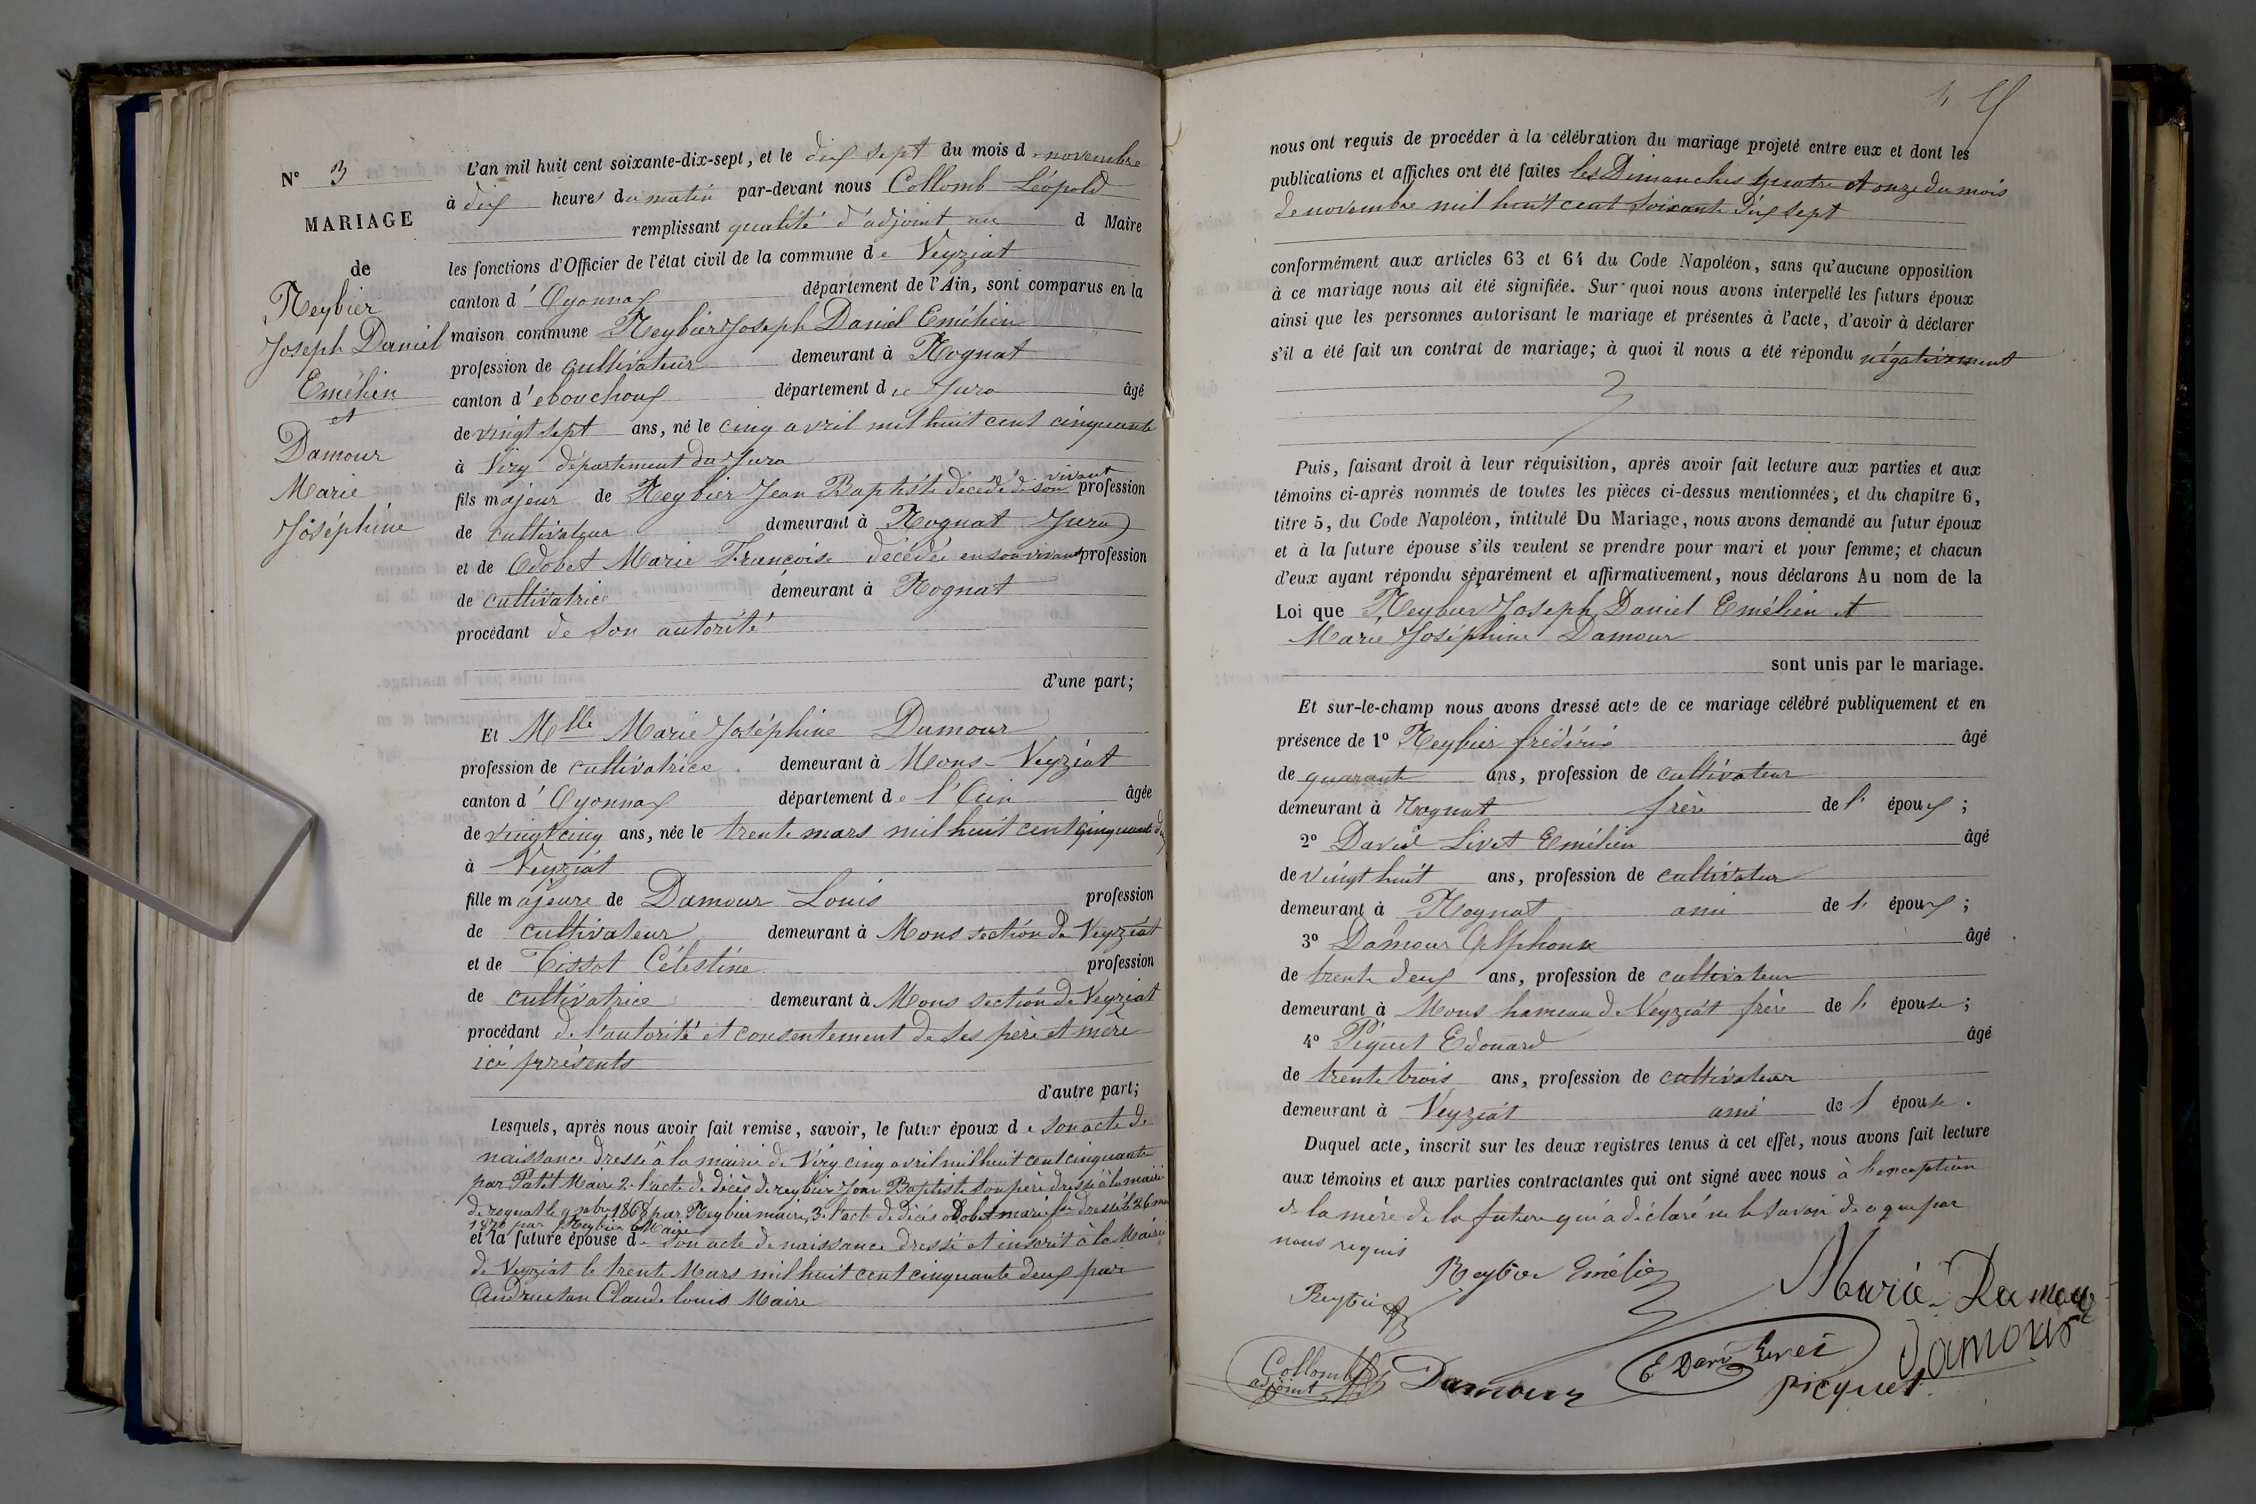 N° 3
MARIAGE
de
Reybier
Joseph Daniel
Emélien
et
Damour
Marie
Joséphine
L'an mil huit cent soixante-dix-sept, et le dix sept du mois d novembre
à dix heures du matin par-devant nous Collomb Léopold
remplissant qualité d'adjoint au d Maire
les fonctions d'Officier de l'état civil de la commune de Veyziat
canton d'Oyonnax département de l'Ain, sont comparus en la
maison commune Reybier Joseph Daniel Emélien
profession de cultivateur demeurant à Rognat
canton d'ebouchoux département de Jura âgé
de vingt sept ans, né le cinq avril mil huit cent cinquante
à Viry département du Jura
fils majeur de Reybier Jean Baptiste décédé de son vivant profession
de cultivateur demeurant à Rognat Jura
et de Odobet Marie Francoise décédée en son vivant profession
de cultivatrice demeurant à Rognat
procédant de son autorité
d'une part;
Et Mlle Marie Joséphine Damour
profession de cultivatrice demeurant à Mons-Veyziat
canton d'Oyonnax département de l'Ain âgée
de vingt cinq ans, née le trente mars mil huit cent cinquante deux
à Veyziat
fille majeure de Damour Louis profession
de cultivateur demeurant à Mons section de Veyziat
et de Tissot Célestine profession
de cultivatrice demeurant à Mons section de Veyziat
procédant de l'autorité et consentement de ses père et mère
ici présents
d'autre part;
Lesquels, après nous avoir fait remise, savoir, le futur époux de son acte de
naissance dressé à la mairie de Viry cinq avril mil huit cent cinquante
par Patet Maire 2° l'acte de décès de reybier Jean Baptiste son père dressé à la mairie
de rognat le 9 9bre 1868 par Reybier maire, 3° l'acte de décès odobet marie fse dressé le 26
1876 par Reybier Maire
et la future épouse de son acte de naissance dressé et inscrit à la Mairie
de Veyziat le trente Mars mil huit cent cinquante deux par
Claude louis Maire
nous ont requis de procéder à la célébration du mariage projeté entre eux et dont les
publications et affiches ont été faites les Dimanches quatre et onze du mois
de novembre mil huit cent soixante dix sept
conformément aux articles 63 et 64 du Code Napoléon, sans qu'aucune opposition
à ce mariage nous ait été signifiée. Sur quoi nous avons interpellé les futurs époux
ainsi que les personnes autorisant le mariage et présentes à l'acte, d'avoir à déclarer
s'il a été fait un contrat de mariage; à quoi il nous a été répondu négativement
Puis, faisant droit à leur réquisition, après avoir fait lecture aux parties et aux
témoins ci-après nommés de toutes les pièces ci-dessus mentionnées, et du chapitre 6,
titre 5, du Code Napoléon, intitulé Du Mariage, nous avons demandé au futur époux
et à la future épouse s'ils veulent se prendre pour mari et pour femme; et chacun
d'eux ayant répondu séparément et affirmativement, nous déclarons Au nom de la
Loi que Reybier Joseph Daniel Emélien et
Marie Joséphine Damour
sont unis par le mariage.
Et sur-le-champ nous avons dressé acte de ce mariage célébré publiquement et en
présence de 1° Reybier frédéric âgé
de quarante ans, profession de cultivateur
demeurant à Rognat frère de l'époux;
2° David Livet Emélien âgé
de vingt huit ans, profession de cultivateur
demeurant à Rognat ami de l'époux;
3° Damour Alphonse âgé
de trente deux ans, profession de cultivateur
demeurant à Mons hameau de Veyziat frère de l'épouse;
4° Piquet Edouard âgé
de trente trois ans, profession de cultivateur
demeurant à Veyziat ami de l'épouse.
Duquel acte, inscrit sur les deux registres tenus à cet effet, nous avons fait lecture
aux témoins et aux parties contractantes qui ont signé avec nous à l'exception
de la mère de la future qui a déclaré ne le savoir de ce que par
nous requis
Reybier Emélien
Marie Damour
Reybier
Damour
Collomb
adjoint
Damour
E David Livet
picquet